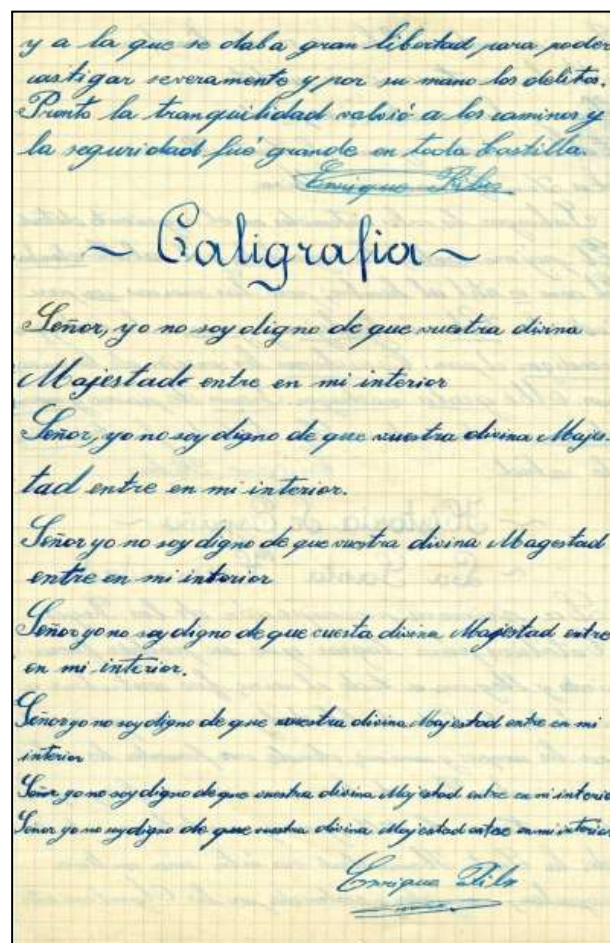 y a la que se daba gran libertad para poder
castigar severamente y por su mano los delitos.
Pronto la tranquilidad volvió a los caminos y
la seguridad fué grande en toda Castilla.
Enrique
~ Caligrafia ~
Señor, yo no soy digno de que vuestra divina
Majestad entre en mi interior
Señor, yo no soy digno de que vuestra divina Majes-
tad entre en mi interior.
Señor yo no soy digno de que vuestra divina Magestad
entre en mi interior
Señor yo no soy digno de que cuesta divina Majestad entre
en mi interior.
Señor yo no soy digno de que vuestra divina Majestad entre en mi
interior
Señor yo no soy digno de que vuestra divina Majestad entre en mi interior
Señor yo no soy digno de que vuestra divina Majestad entre en mi interior
Enrique